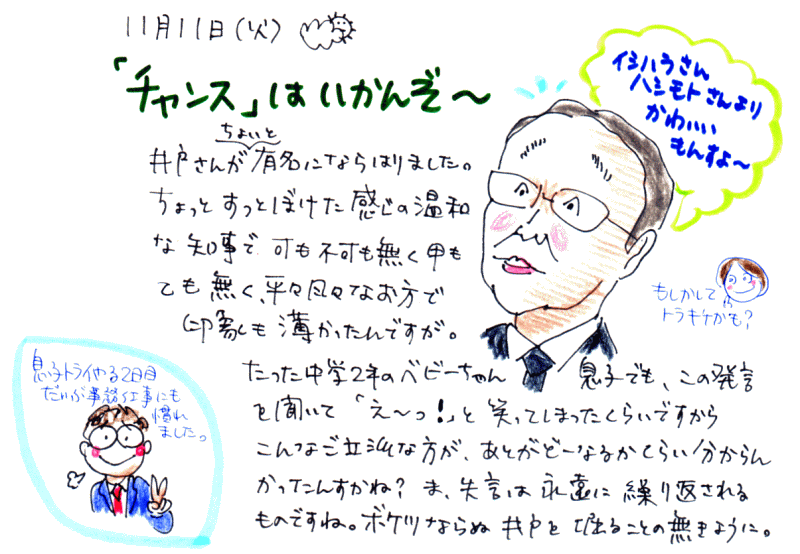 11月11日(火)
「チャンス」はいかんぞ～
イシハラさん
ハシモトさんより
かわいい
もんすよ～
ちょいと
井戸さんが有名にならはりました。
ちょっとすっとぼけた感じの温和
な知事で可も不可も無く甲も
ても無く、平々凡々なお方で
印象も薄かったんですが。
もしかして
トラキチかも?
息子トライやる2日目
だいぶ事務仕事にも
慣れ
ました。
たった中学2年のベビーちゃん 息子でも、この発言
を聞いて「え～っ!」と笑ってしまったくらいですから
こんなご立派な方が、あとがどーなるかくらい分からん
かったんすかね? ま、失言は永遠に繰り返される
ものですね。ボケツならぬ井戸を掘ることの無きように。